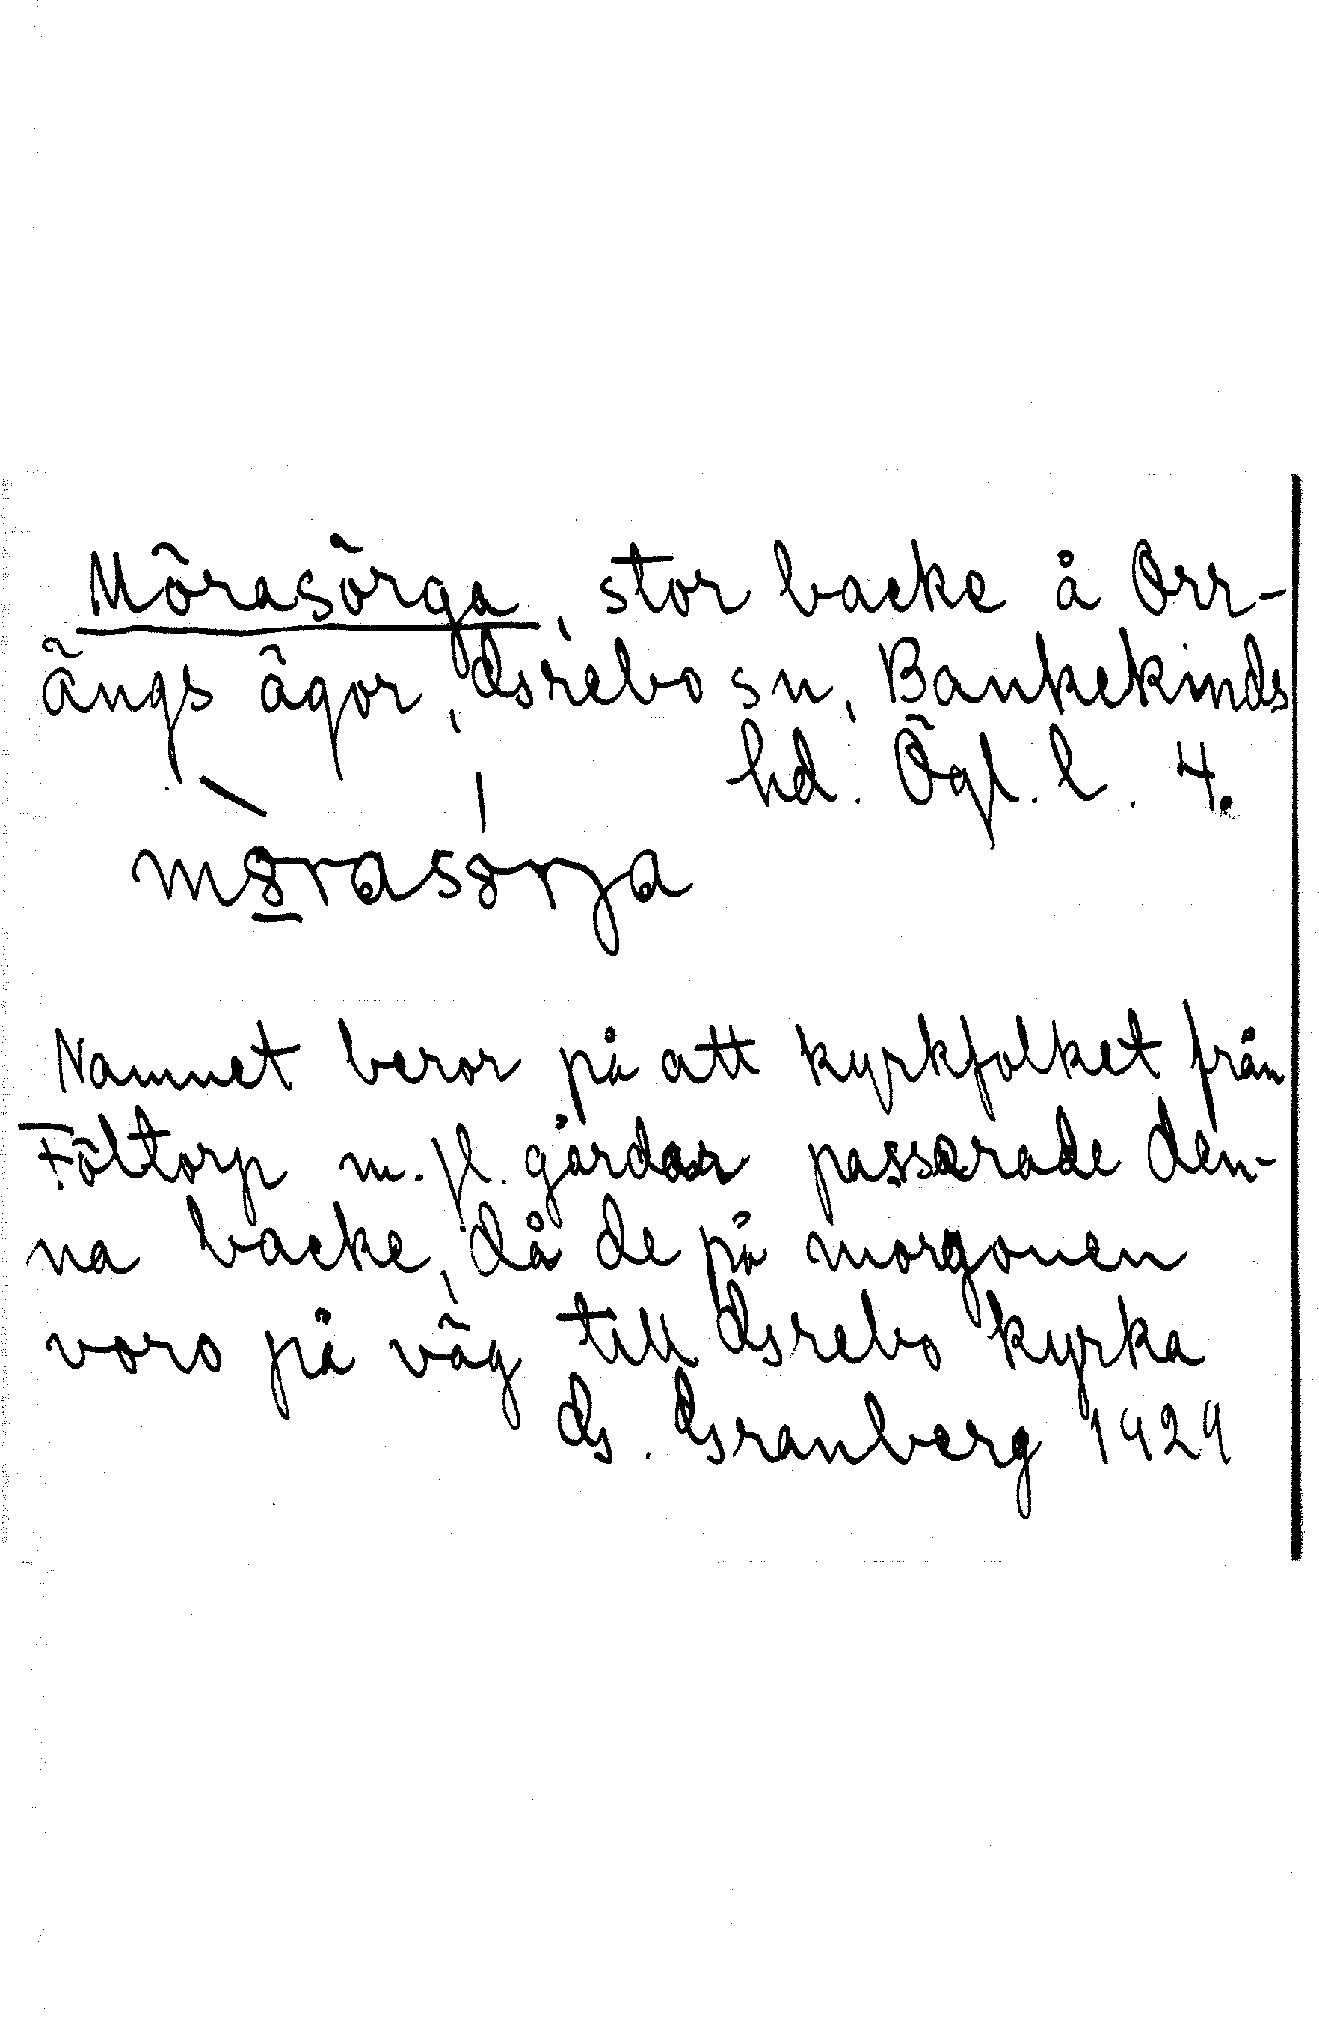 Mörasörga, stor backe å Orr-
ängs ägor, Grebo sn, Bankekinds
hd. Ögl. l. 4.
mörasörja
Namnet beror på att kyrkfolket från
Fältorp m. fl. gårdar passerade den-
na backe, då de på morgonen
voro på väg till Grebo kyrka
G. Granberg 1929